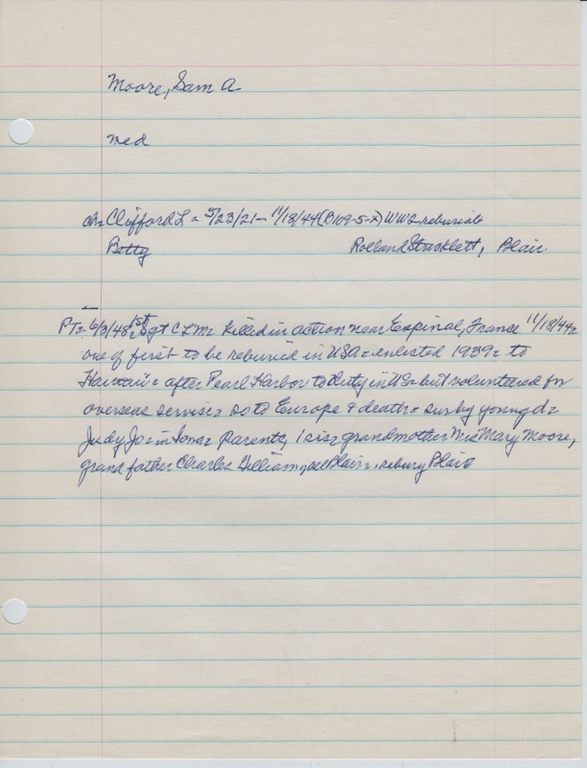 Moore, Sam A
Med
ch= Clifford L = 5/23/21 - 11/18/44 (B109-5-2) WW2 reburial=
Betty Rolland Stricklett, Blair
PT= 6/3/48= 1st Sgt CLM= killed in action near Espinal, France 11/18/44=
one of first to be reburied in USA= enlisted 1939= to
Hawaii= after Pearl Harbor to duty in US= but volunteered for
overseas service= so to Europe & death= sur by young d=
Judy Jo= in Iowa= parents, 1 sis= grandmother Mrs Mary Moore,
grand father Charles Gilliam, all Blair=, rebury Blair